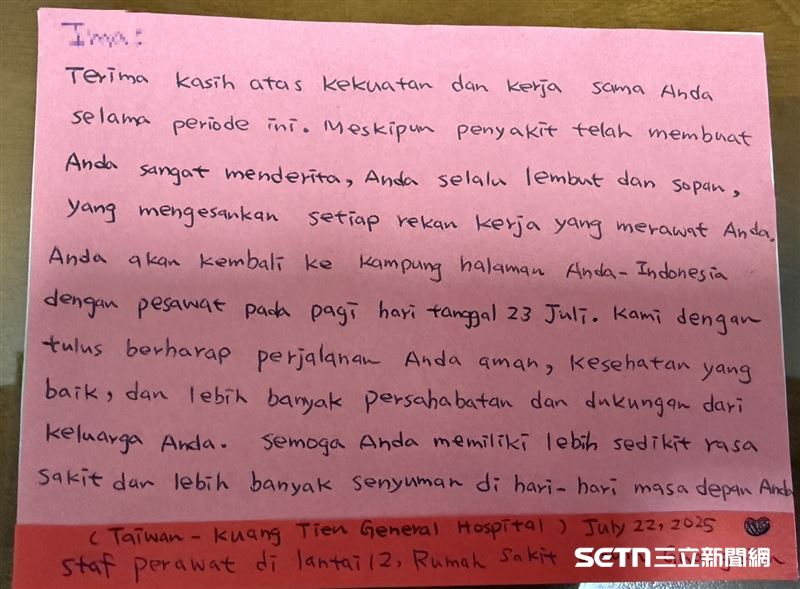 Ima:
Terima kasih atas kekuatan dan kerja sama Anda
selama periode ini. Meskipun penyakit telah membuat
Anda sangat menderita, Anda selalu lembut dan sopan,
yang mengesankan setiap rekan kerja yang merawat Anda.
Anda akan kembali ke kampung halaman Anda-Indonesia
dengan pesawat pada pagi hari tanggal 23 Juli. Kami dengan
tulus berharap perjalanan Anda aman, kesehatan yang
baik, dan lebih banyak persahabatan dan dukungan dari
keluarga Anda. Semoga Anda memiliki lebih sedikit rasa
sakit dan lebih banyak senyuman di hari-hari masa depan Anda
(Taiwan - Kuang Tien General Hospital) July 22, 2025
staf perawat di lantai 12, Rumah Sakit
SETN三立新聞網